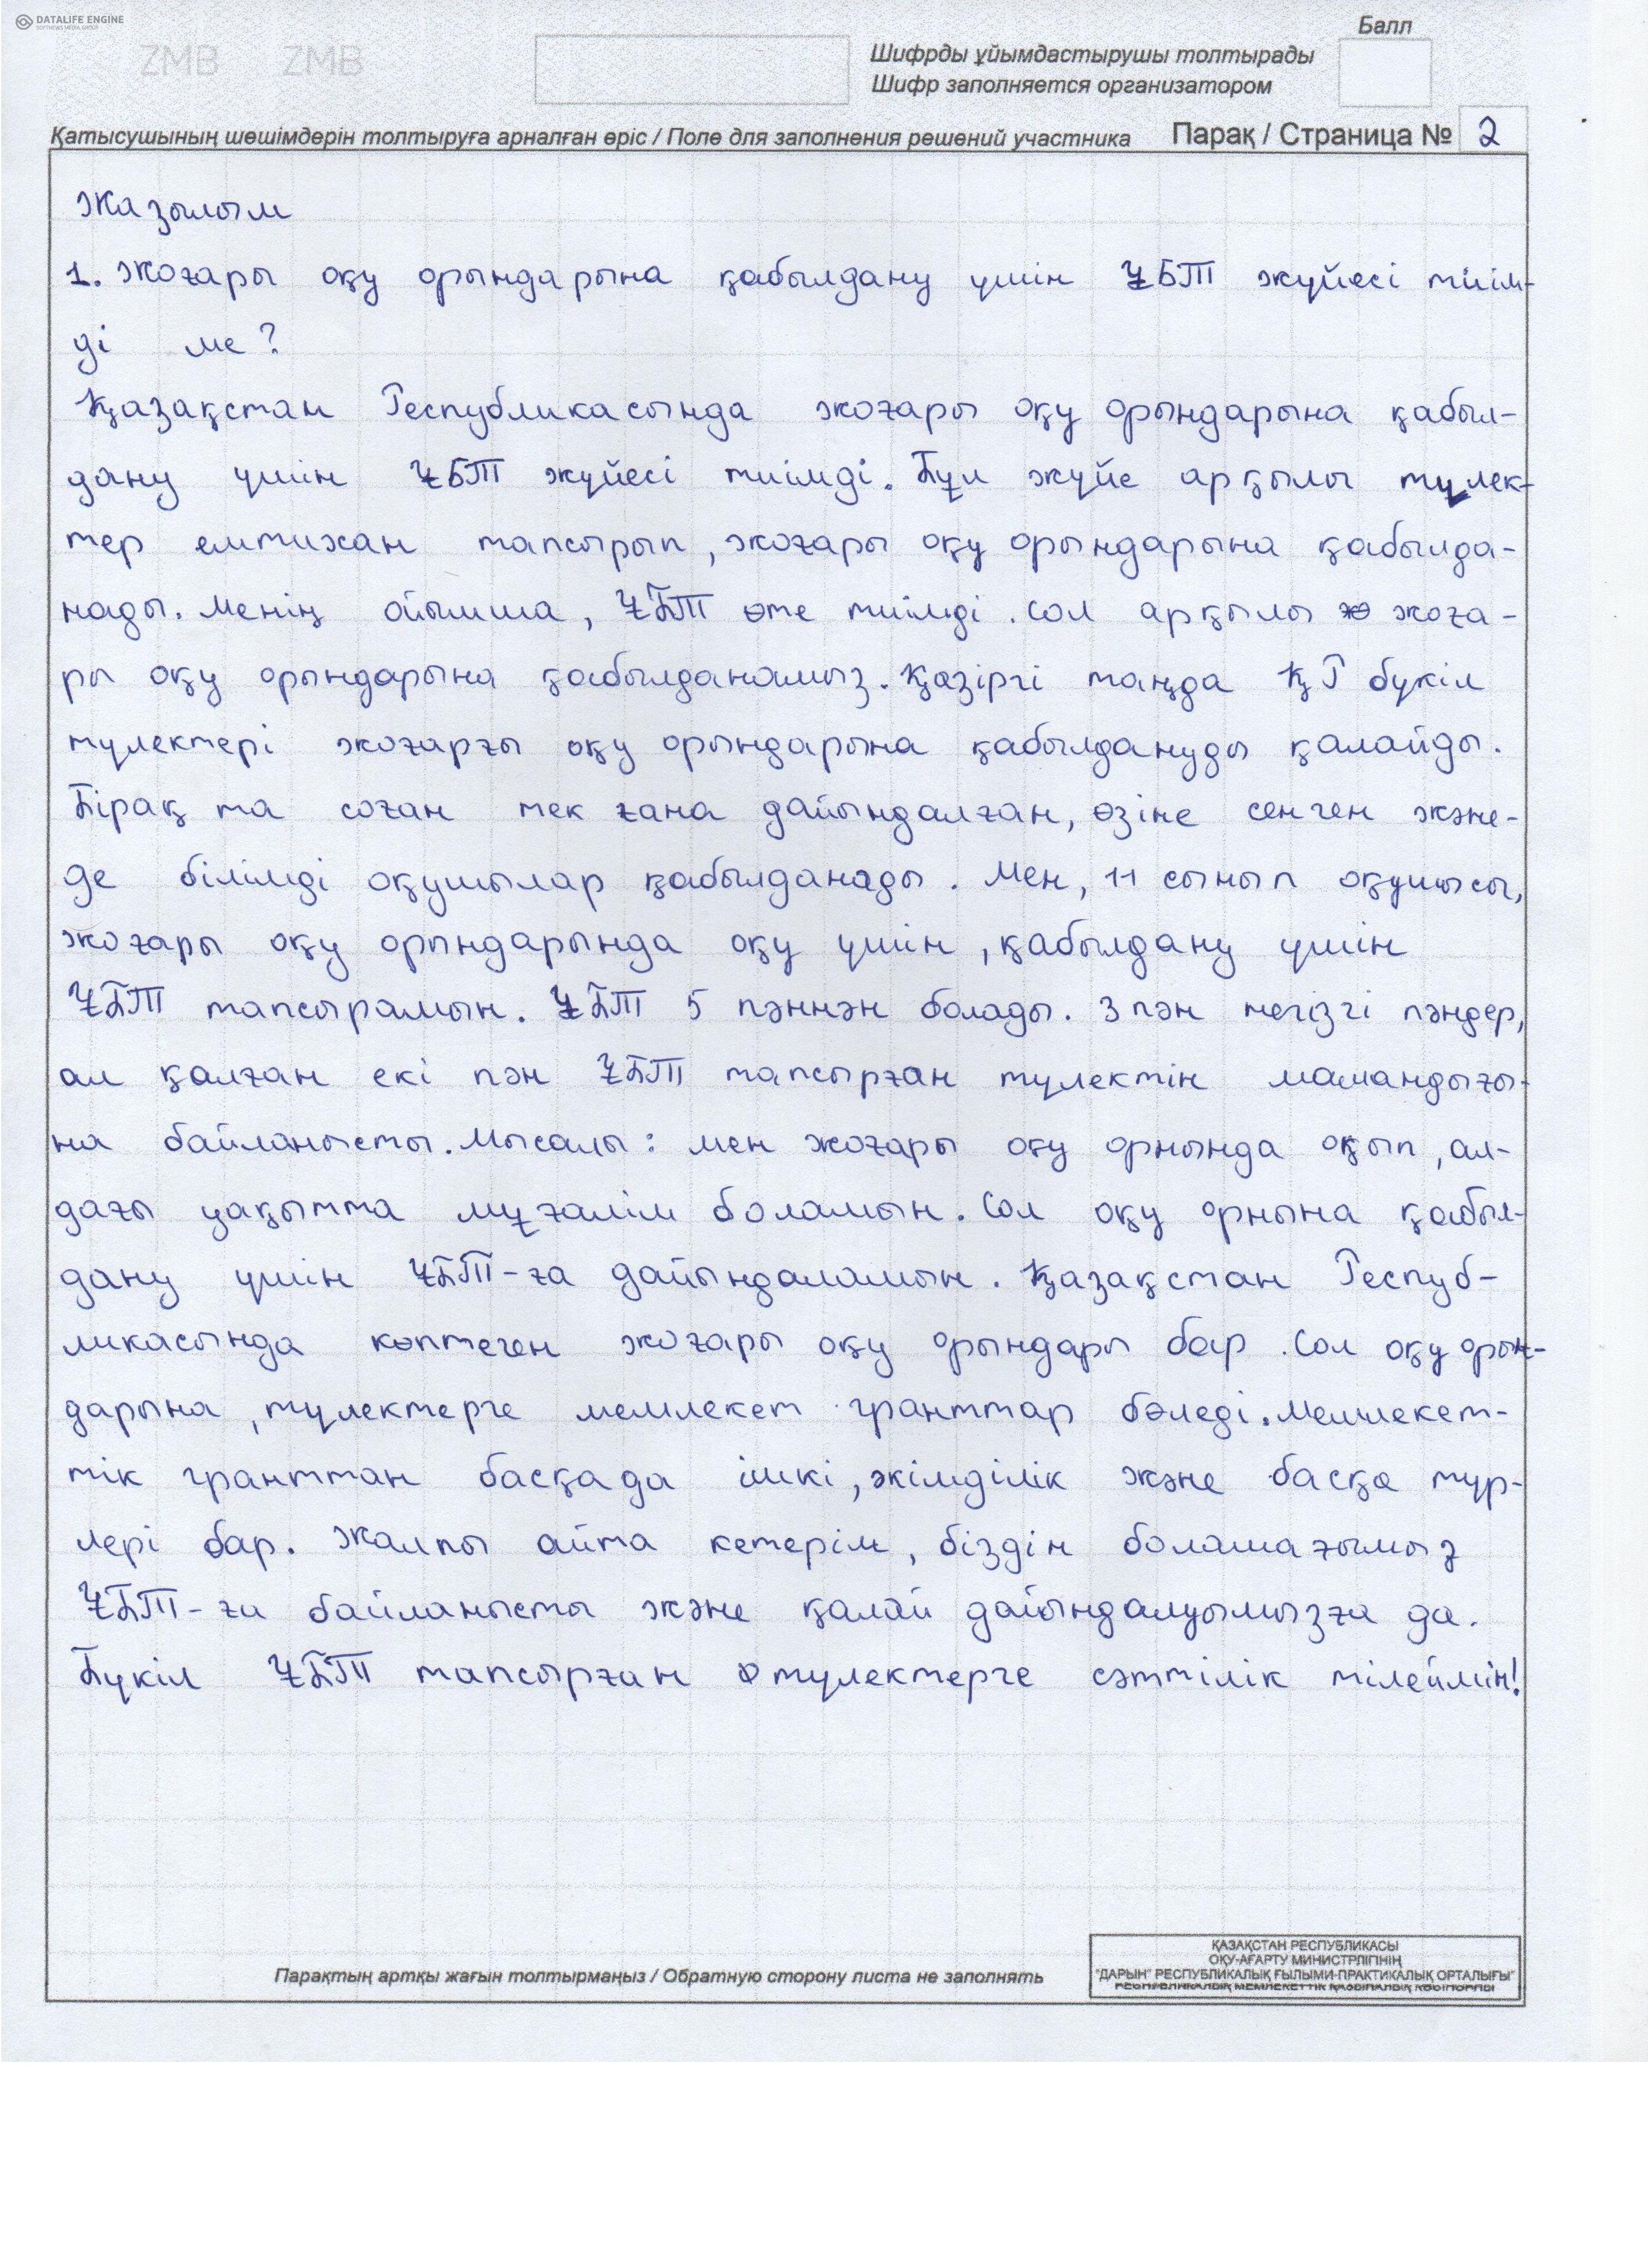 DATALIFE ENGINE
SOFTNEWS MEDIA GROUP
ZMB ZMB
Балл
Шифрды ұйымдастырушы толтырады
Шифр заполняется организатором
Қатысушының шешімдерін толтыруға арналған өріс / Поле для заполнения решений участника Парақ / Страница № 2
Жазылым
1. Жоғары оқу орындарына қабылдану үшін ҰБТ жүйесі тиім-
ді ме?
Қазақстан Республикасында жоғары оқу орындарына қабыл-
дану үшін ҰБТ жүйесі тиімді. Бұл жүйе арқылы түлек-
тер емтихан тапсырып, жоғары оқу орындарына қабылда-
нады. Менің ойымша, ҰБТ өте тиімді. Сол арқылы жоға-
ры оқу орындарына қабылданамыз. Қазіргі таңда ҚР бүкіл
түлектері жоғарғы оқу орындарына қабылдануды қалайды.
Бірақ та соған тек ғана дайындалған, өзіне сенген және-
де білімді оқушылар қабылданады. Мен, 11 сынып оқушысы,
жоғары оқу орындарында оқу үшін, қабылдану үшін
ҰБТ тапсырамын. ҰБТ 5 пәннән болады. 3 пән негізгі пәндер,
ал қалған екі пән ҰБТ тапсырған түлектін мамандығы-
на байланысты. Мысалы: мен жоғары оқу орнында оқып, ал-
дағы уақытта мұғалім боламын. Сол оқу орнына қабыл-
дану үшін ҰБТ-ға дайындаламын. Қазақстан Респуб-
ликасында көптеген жоғары оқу орындары бар. Сол оқу орын-
дарына, түлектерге мемлекет гранттар бөледі. Мемлекет-
тік гранттан басқада ішкі, әкімділік және басқа түр-
лері бар. Жалпы айта кетерім, біздін болашағымыз
ҰБТ-ға байланысты және қалай дайындалуымызға да.
Бүкіл ҰБТ тапсырған түлектерге сәттілік тілеймін!
Парақтың артқы жағын толтырмаңыз / Обратную сторону листа не заполнять
ҚАЗАҚСТАН РЕСПУБЛИКАСЫ
ОҚУ-АҒАРТУ МИНИСТРЛІГІНІҢ
"ДАРЫН" РЕСПУБЛИКАЛЫҚ ҒЫЛЫМИ-ПРАКТИКАЛЫҚ ОРТАЛЫҒЫ"
РЕСПУБЛИКАЛЫҚ МЕМЛЕКЕТТІК ҚАЗЫНАЛЫҚ КӘСІПОРНЫ